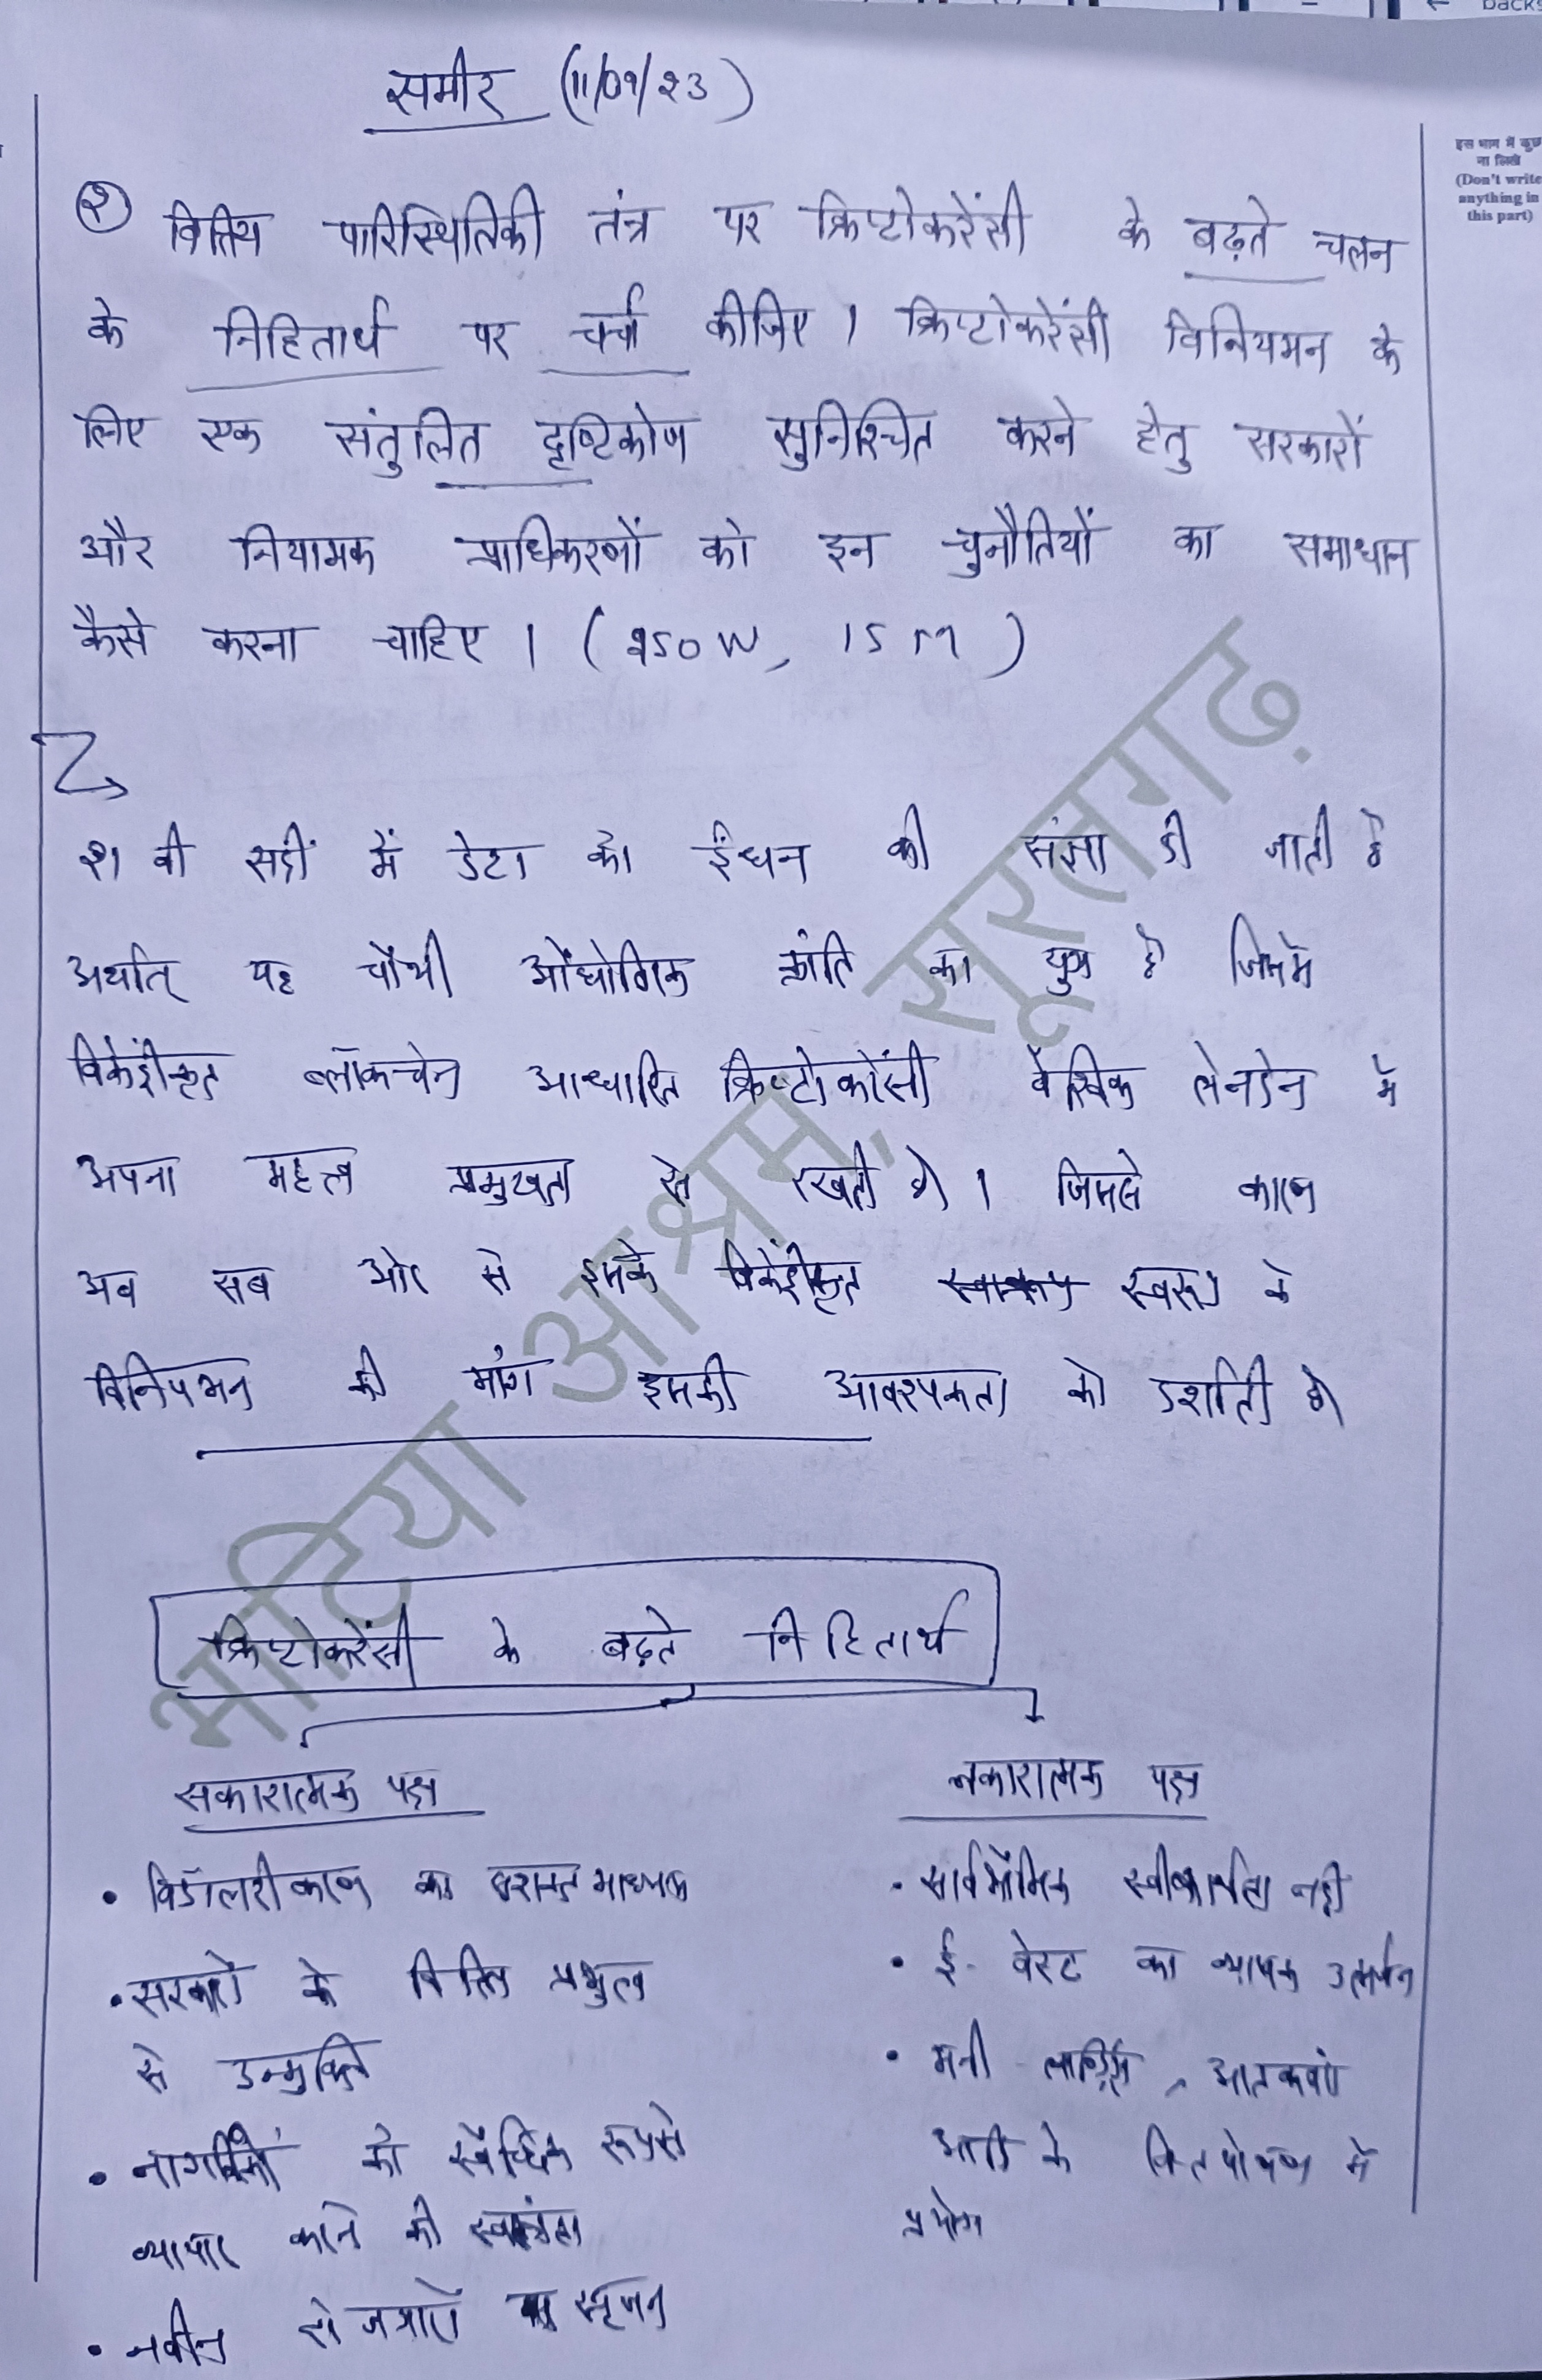 backs
समीर (11/09/23)
इस भाग में कुछ
ना लिखें
(Don't write
anything in
this part)
② वित्तिय पारिस्थितिकी तंत्र पर क्रिप्टोकरेंसी के बढ़ते चलन
के निहितार्थ पर चर्चा कीजिए । क्रिप्टोकरेंसी विनियमन के
लिए एक संतुलित दृष्टिकोण सुनिश्चित करने हेतु सरकारों
और नियामक प्राधिकरणों को इन चुनौतियों का समाधान
कैसे करना चाहिए । (250 W, 15 M)
21 वी सदीं में डेटा को ईंधन की संज्ञा दी जाती है
अर्थात् यह चौंथी औंधोगिक क्रांति का युग है जिसमें
विकेंद्रीकृत ब्लॉकचेन आधारित क्रिप्टोकरेंसी वैश्विक लेनदेन में
अपना महत्व प्रमुखता से रखती है । जिसके कारण
अब सब ओर से इसके विकेंद्रीकृत स्वरूप के
विनियमन की मांग इसकी आवश्यकता को दर्शाती है
क्रिप्टोकरेंसी के बढ़ते निहितार्थ
सकारात्मक पक्ष
नकारात्मक पक्ष
• विडॉलरीकरण का सशक्त माध्यम
• सरकारों के वित्तिय प्रभुत्व
से उन्मुक्ति
• नागरिकों को स्वैच्छिक रूप से
व्यापार करने की स्वतंत्रता
• नवीन रोजगारों का सृजन
• सार्वभौंमिक स्वीकार्यता नहीं
• ई-वेस्ट का व्यापक उत्सर्जन
• मनी लांड्रिंग, आतंकवाद
आदी के वित्तपोषण में
प्रयोग
भाटिया आश्रम, सूरतगढ़